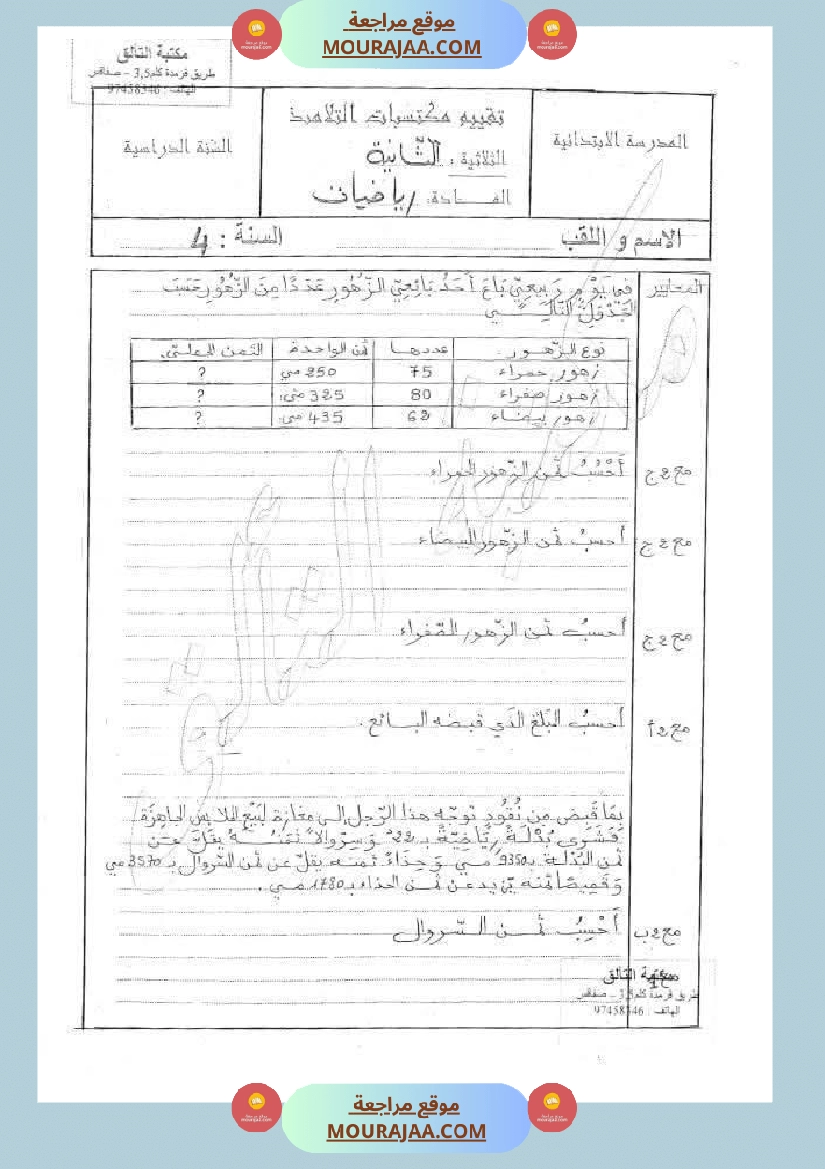 موقع مراجعة
MOURAJAA.COM
مكتبة التالق
طريق قرمدة كلم3,5 - صفاقس
الهاتف : 97458546
المدرسة الابتدائية
تقييم مكتسبات التلاميذ
الثلاثية : الثّانية
المـــادة: رياضيات
السّنة الدراسية
الاسم و اللقب
السنة : 4
المعايير
في يَوْمٍ رَبِيعِيٍّ بَاعَ أَحَدُ بَائِعِيّ الزّهُورِ عَدَدًا مِنَ الزّهُورِ حَسَبَ
الجَدْوَلِ التَّالِـــي
نوع الزّهور | عددها | ثمن الواحدة | الثمن الجملي
زهور حمراء | 75 | 250 مي | ?
زهور صفراء | 80 | 325 مي | ?
زهور بيضاء | 62 | 435 مي | ?
مع 2 ج
أَحْسُبُ ثمن الزّهور الحمراء
مع 2 ج
أحسبُ ثمن الزّهور البيضاء
مع 2 ج
أحسبُ ثمن الزّهور الصّفراء
مع 2 أ
أحسبُ المبْلغ الذي قبضه البــائع .
بِمَا قَبِضَ مِن نُقُودٍ توجّه هذا الرّجل إلى مغازة لبَيْع الملابس الجاهِزَة
فَشَرَى بَدْلَةً رِيَاضِيّةً بـ 22د وَسِرْوالاً ثَمَنُـــهُ يقلّ عن
ثمن البَدْلة بـ 9350 مـي وَحِذاءً ثمنه يقلّ عن ثمن السّروال بـ 3570 مي
وَقميصًا ثمنه يزيد عن ثمـن الحذاء بـ مـي .
مع 2 ب
أَحْسِبُ ثمـــن السّروال
مكتبة التالق
طريق قرمدة كلم3,5 - صفاقس
الهاتف : 97458546
موقع مراجعة
MOURAJAA.COM